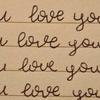 u love you
u love you
u love you
u love you